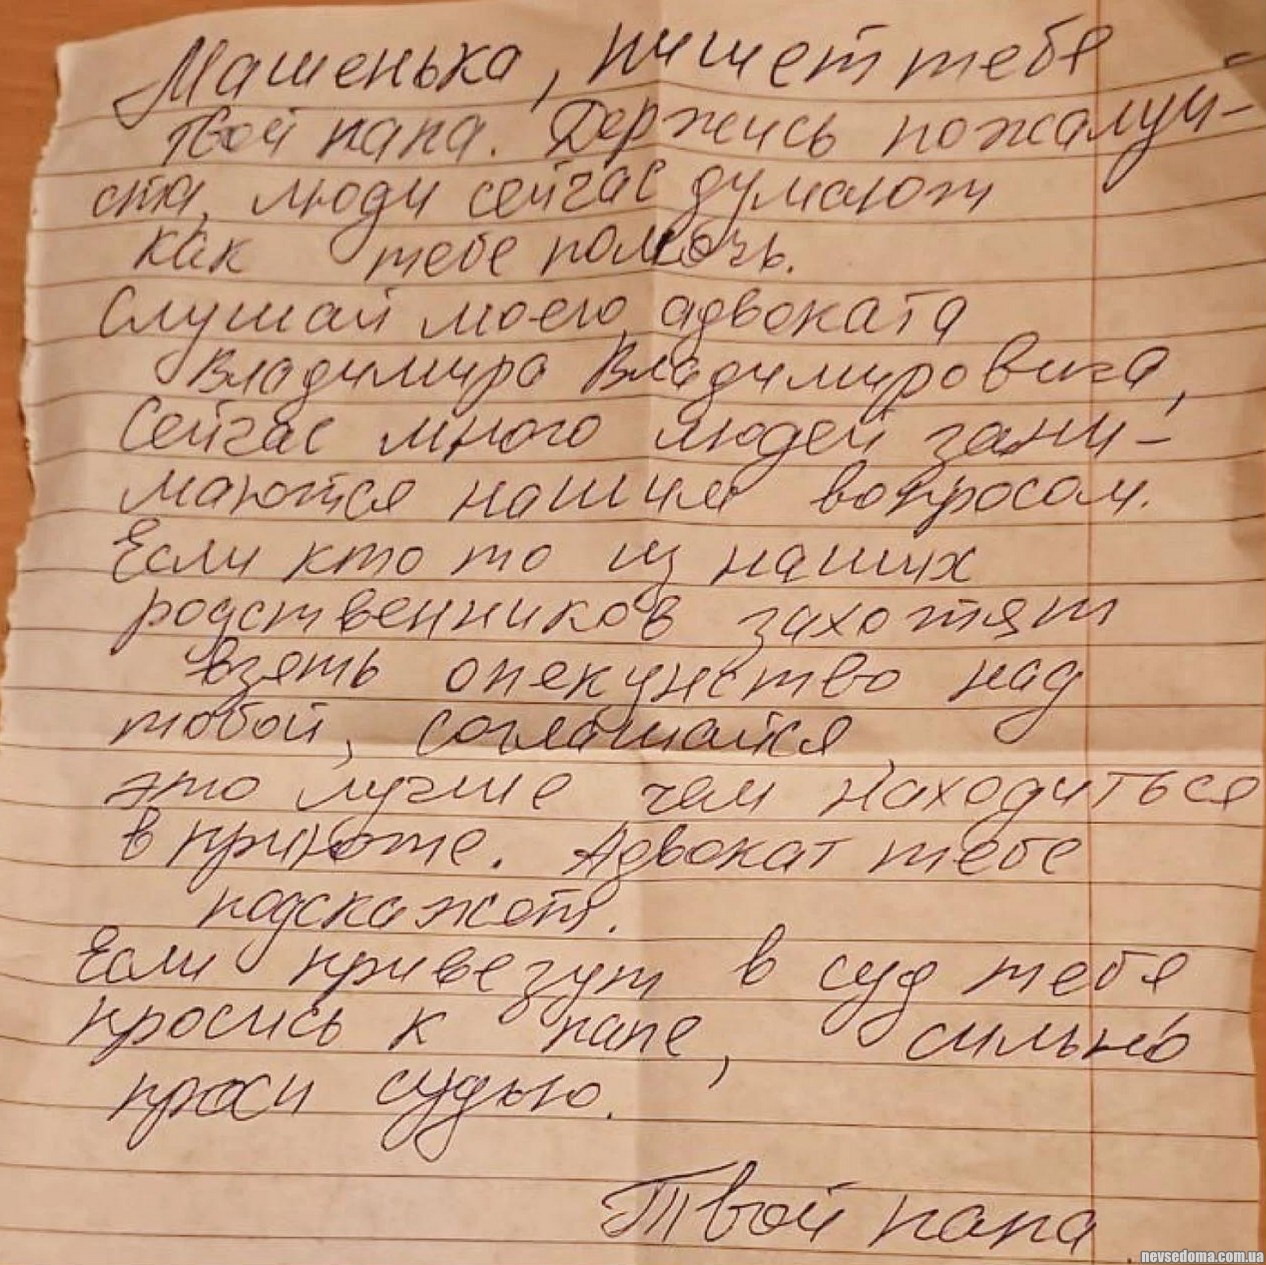 Машенька, пишет тебе
твой папа. Держись пожалуй-
ста, люди сейчас думают
как тебе помочь.
Слушай моего адвоката
Владимира Владимировича,
Сейчас много людей зани-
маются нашим вопросом.
Если кто то из наших
родственников захотят
взять опекунство над
тобой, соглашайся,
это лучше чем находиться
в приюте. Адвокат тебе
подскажет.
Если привезут в суд тебя
просись к папе, сильно
проси судью.
Твой папа
nevsedoma.com.ua